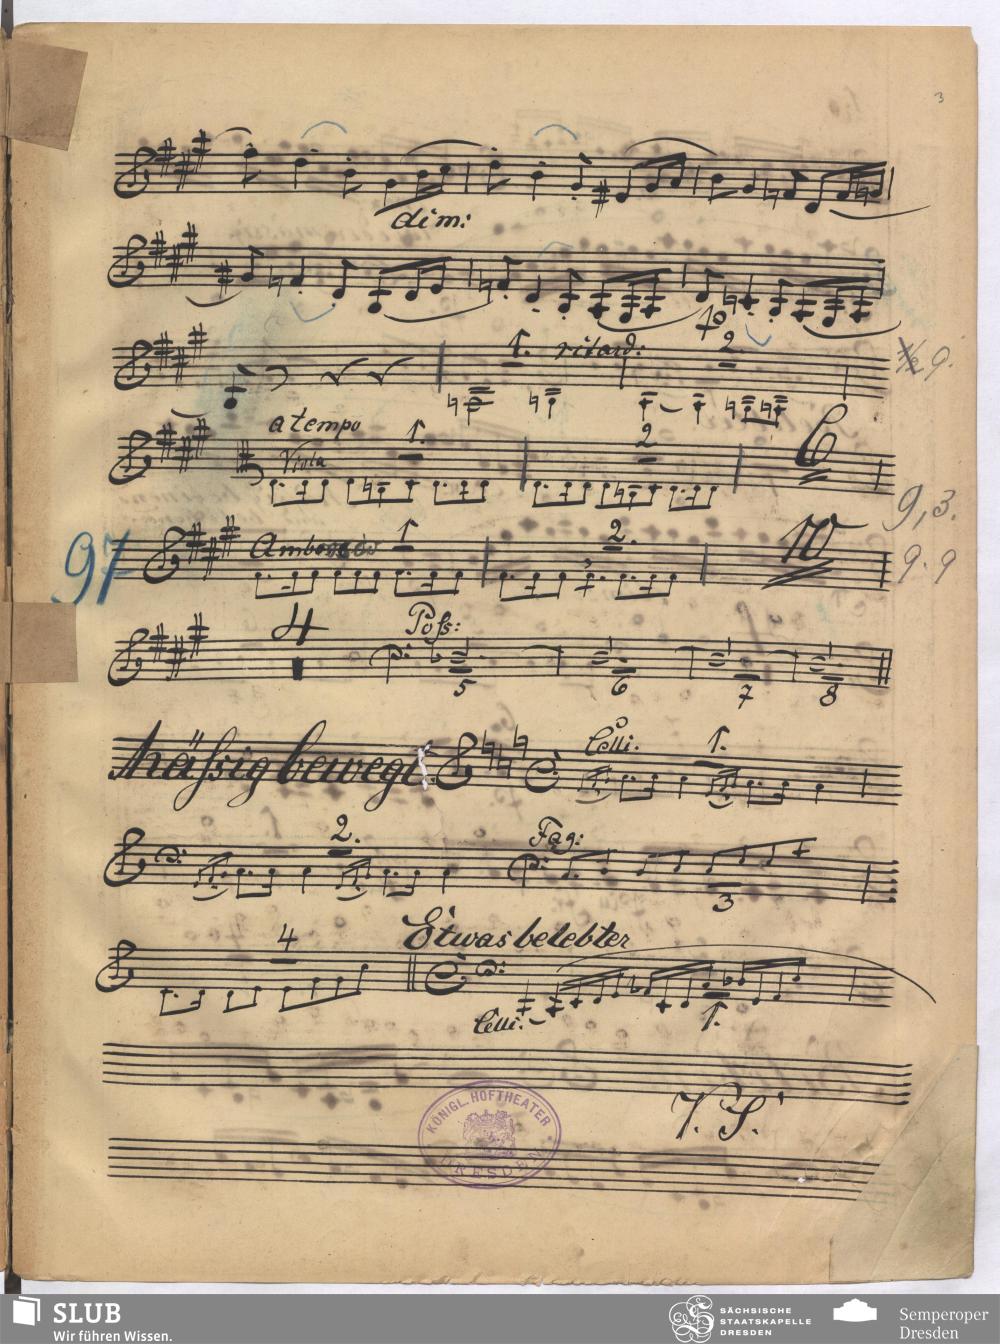 3
dim:
p
1. ritard: 2
9.
a tempo
Viola 1. 2 6
9,3.
97 Ambosse 1 2. 10
9.9
4 Poss:
5 6 7 8
Mässig bewegt C Celli. 1.
2. Fag:
3
4 Etwas belebter
Celli. 1.
V. S.
KÖNIGL. HOFTHEATER
DRESDEN
SLUB
Wir führen Wissen.
SÄCHSISCHE
STAATSKAPELLE
DRESDEN
Semperoper
Dresden